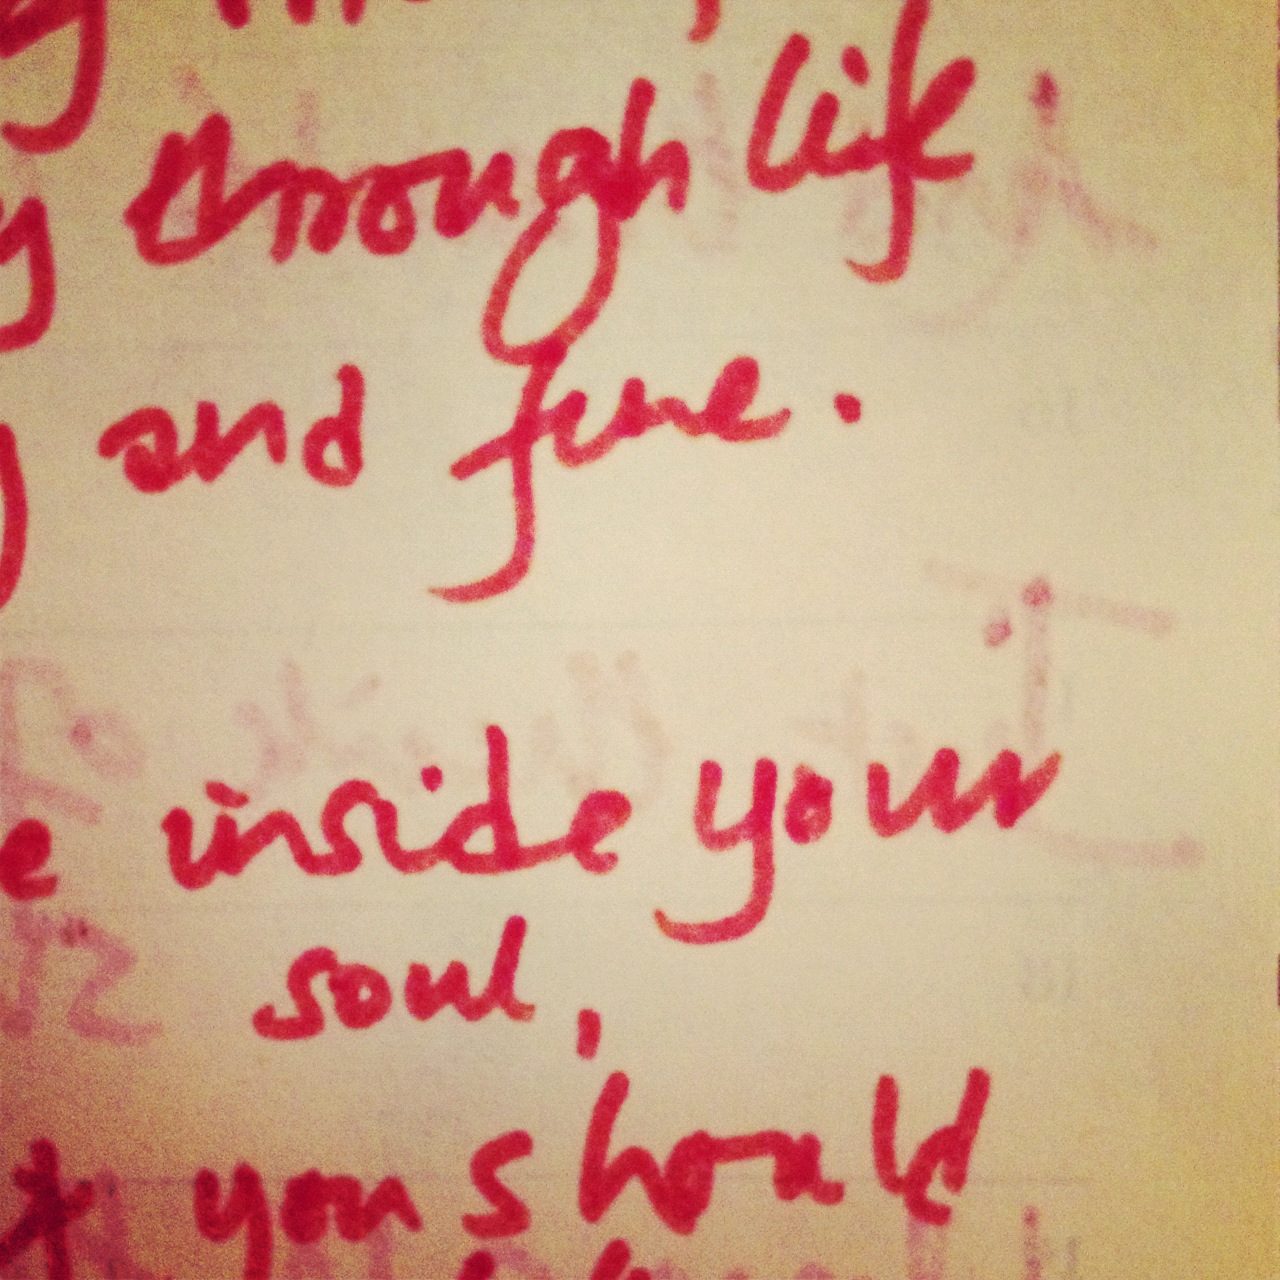 through life
and fine.
inside your
soul,
you should